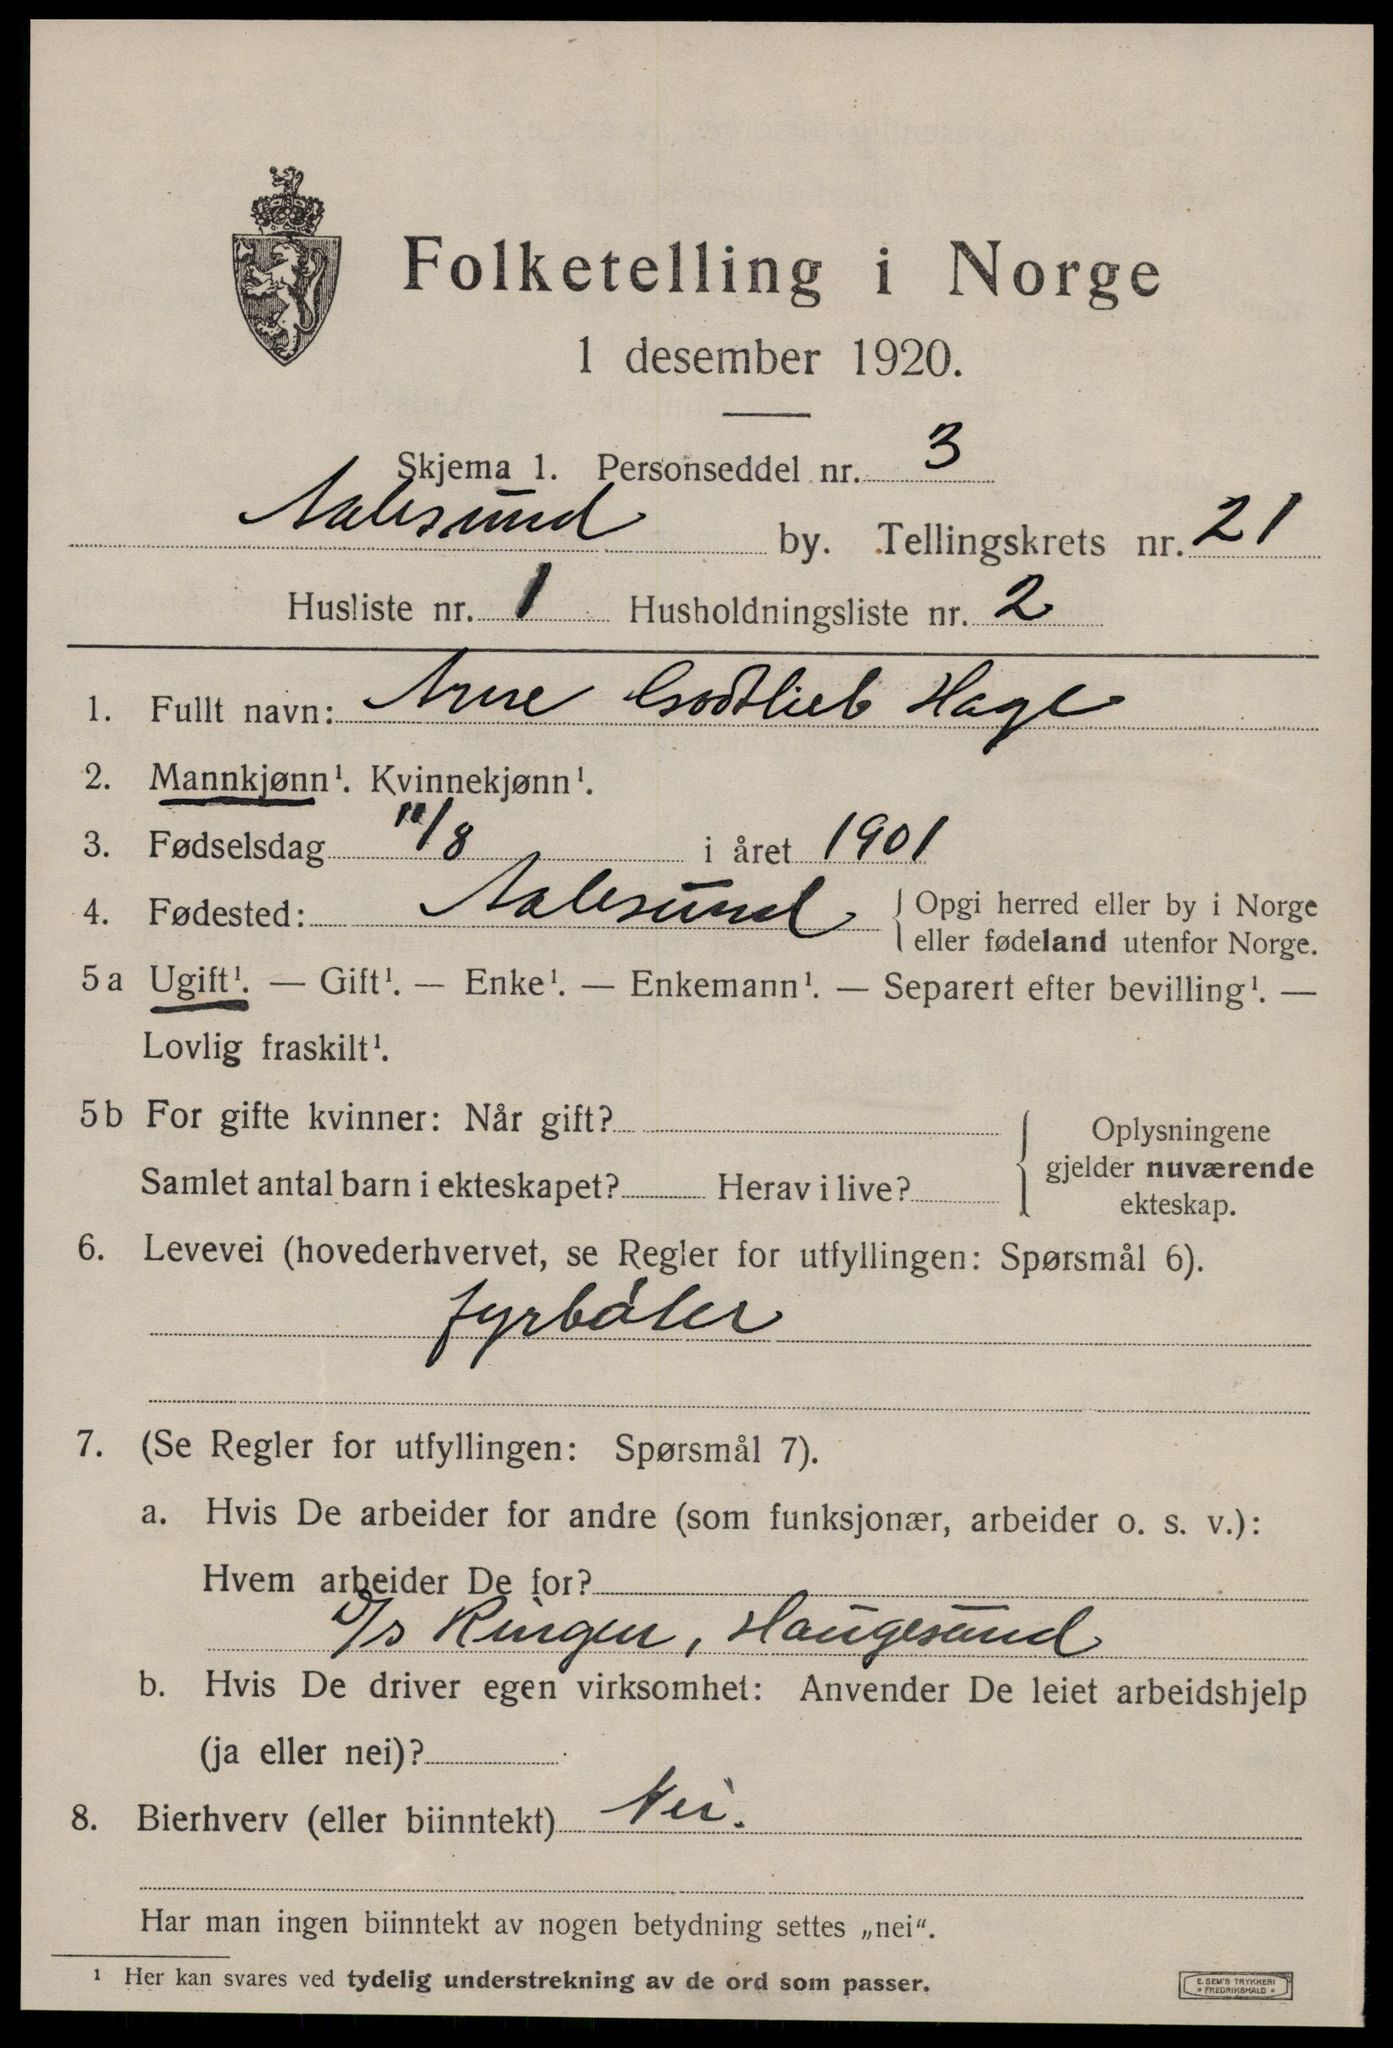 Folketelling i Norge
1 desember 1920.
Skjema 1. Personseddel nr. 3
Aalesund by. Tellingskrets nr. 21
Husliste nr. 1 Husholdningsliste nr. 2
1. Fullt navn: Arne Gottlieb Hage
2. Mannkjønn¹. Kvinnekjønn¹.
3. Fødselsdag 11/8 i året 1901
4. Fødested: Aalesund { Opgi herred eller by i Norge
eller fødeland utenfor Norge.
5a Ugift¹. — Gift¹. — Enke¹. — Enkemann¹. — Separert efter bevilling¹. —
Lovlig fraskilt¹.
5b For gifte kvinner: Når gift?
Samlet antal barn i ekteskapet? Herav i live?
{ Oplysningene
gjelder nuværende
ekteskap.
6. Levevei (hovederhvervet, se Regler for utfyllingen: Spørsmål 6).
fyrbøter
7. (Se Regler for utfyllingen: Spørsmål 7).
a. Hvis De arbeider for andre (som funksjonær, arbeider o. s. v.):
Hvem arbeider De for?
D/s Ringen, Haugesund
b. Hvis De driver egen virksomhet: Anvender De leiet arbeidshjelp
(ja eller nei)?
8. Bierhverv (eller biinntekt) Nei.
Har man ingen biinntekt av nogen betydning settes „nei“.
¹ Her kan svares ved tydelig understrekning av de ord som passer.
E. SEM'S TRYKKERI
FREDRIKSHALD